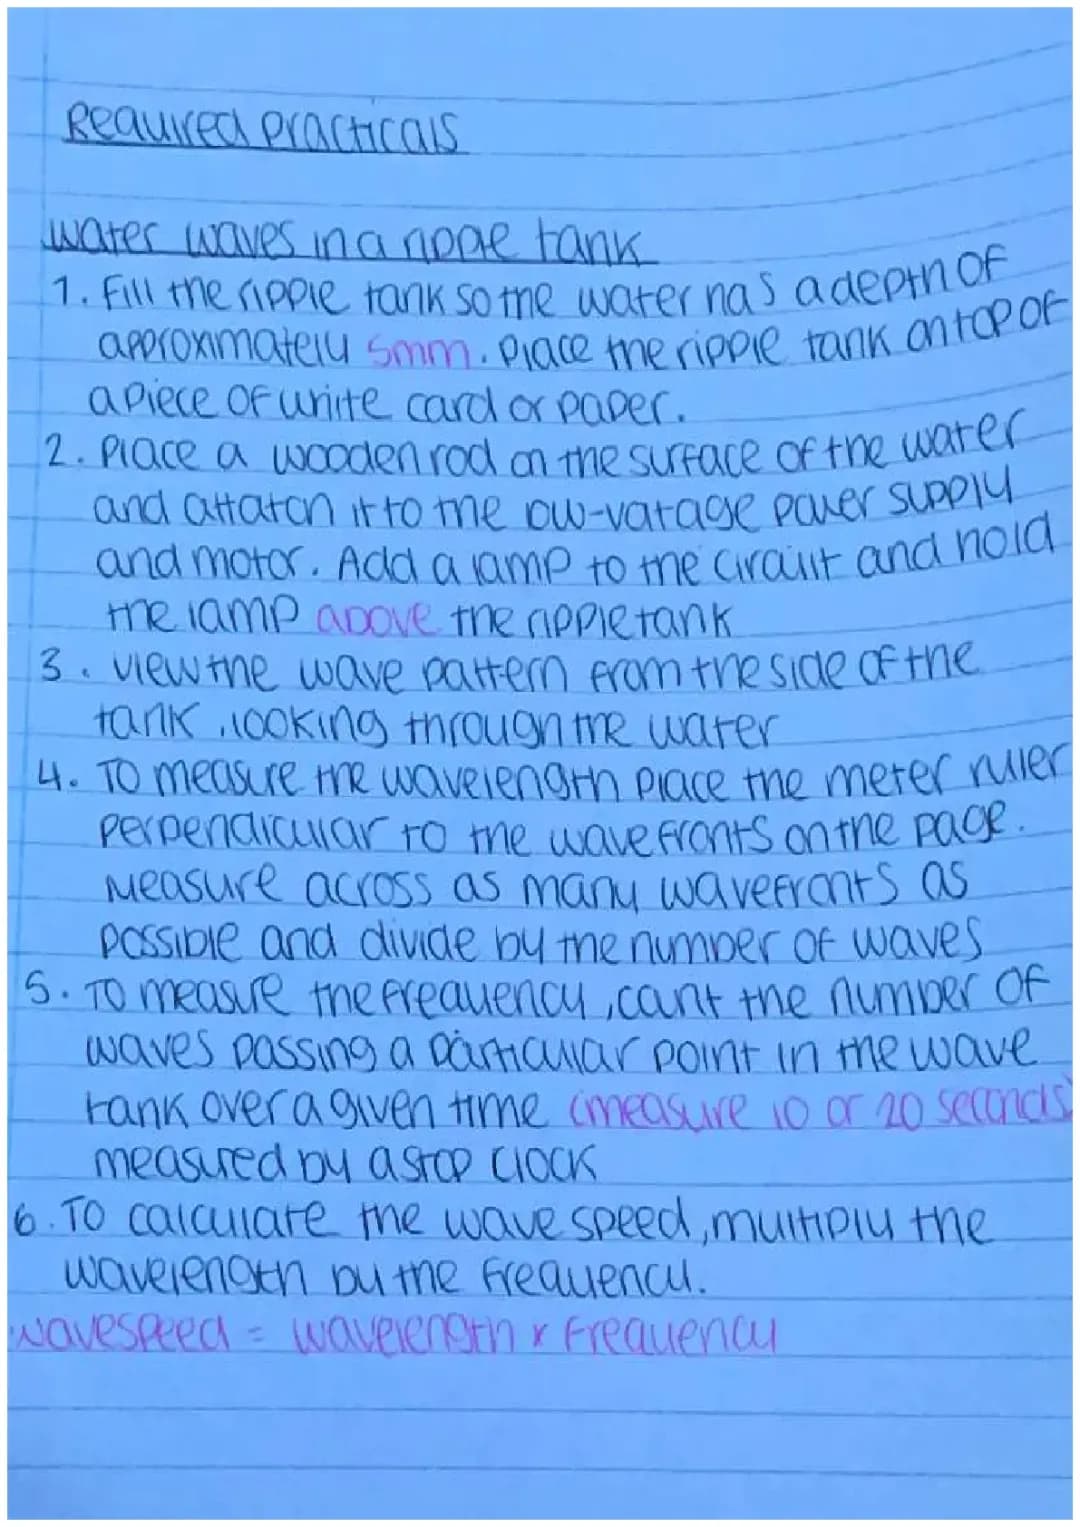 Required practicals
water waves in a ripple tank
1. Fill the ripple tank so the water has a depth of
approximately 5mm. Place the ripple tank on top of
a piece of white card or paper.
2. Place a wooden rod on the surface of the water
and attatch it to the low-vatage power supply
and motor. Add a lamp to the circuit and hold
the lamp above the ripple tank
3. view the wave pattern from the side of the
tank, looking through the water
4. To measure the wavelength place the meter ruler
perpendicular to the wavefronts on the page.
Measure across as many wavefronts as
possible and divide by the number of waves
5. To measure the frequency, count the number of
waves passing a particular point in the wave
tank over a given time (measure 10 or 20 seconds)
measured by a stop clock
6. To calculate the wave speed, multiply the
wavelength by the frequency.
wavespeed = wavelength x frequency